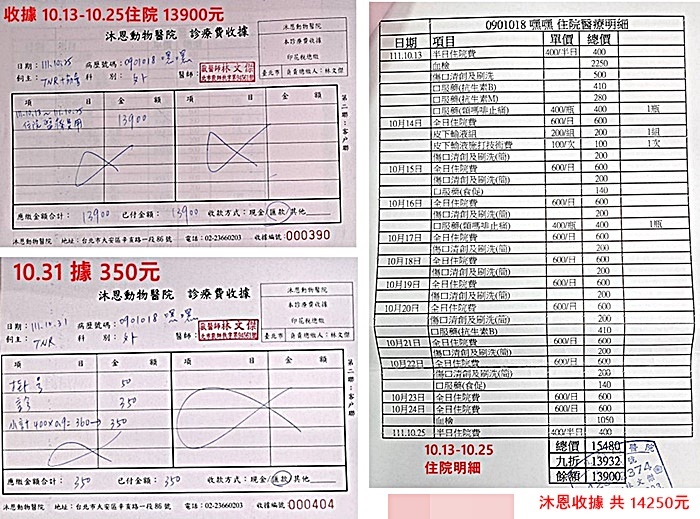 收據 10.13-10.25住院 13900元
沐恩動物醫院 診療費收據
沐恩動物醫院
本診療費收據
印花稅總繳
臺北市 負責總繳人:林文傑
日期: 111.10.25 病歷號碼: 0901018 嘿嘿 醫師:
獸醫師林文傑
飼主: 科 別: 外
項 目 金 額 項 目 金 額
13900
第二聯:客戶聯
應繳金額合計: 13900 已付金額: 13900 收款方式:現金/匯款/其他
沐恩動物醫院 地址:台北市大安區辛亥路一段86號 電話:02-23660203 收據編號:000390
10.31 據 350元
沐恩動物醫院 診療費收據
沐恩動物醫院
本診療費收據
印花稅總繳
臺北市 負責總繳人:林文傑
日期: 111.10.31 病歷號碼: 0901018 嘿嘿 醫師:
獸醫師林文傑
飼主: TNR 科 別: 外
項 目 金 額 項 目 金 額
掛號 50
350
小計400x0.9=360→350 350
第二聯:客戶聯
應繳金額合計: 350 已付金額: 350 收款方式:現金/匯款/其他
沐恩動物醫院 地址:台北市大安區辛亥路一段86號 電話:02-23660203 收據編號:000404
0901018 嘿嘿 住院醫療明細
日期 項目 單價 總價
111.10.13 半日住院費 400/半日 400
血檢 2250
傷口清創及刷洗 500
口服藥(抗生素B) 410
口服藥(抗生素M) 280
口服藥(類嗎啡止痛) 400/瓶 400 1瓶
10月14日 全日住院費 600/日 600
皮下輸液組 200/組 200 1組
皮下輸液施打技術費 100/次 100 1次
傷口清創及刷洗(簡) 200
10月15日 全日住院費 600/日 600
傷口清創及刷洗(簡) 200
口服藥(食促) 140
10月16日 全日住院費 600/日 600
傷口清創及刷洗(簡) 200
口服藥(類嗎啡止痛) 400/瓶 400 1瓶
10月17日 全日住院費 600/日 600
傷口清創及刷洗(簡) 200
10月18日 全日住院費 600/日 600
傷口清創及刷洗(簡) 200
10月19日 全日住院費 600/日 600
傷口清創及刷洗(簡) 200
10月20日 全日住院費 600/日 600
傷口清創及刷洗(簡) 200
口服藥(抗生素B) 410
10月21日 全日住院費 600/日 600
傷口清創及刷洗(簡) 200
10月22日 全日住院費 600/日 600
傷口清創及刷洗(簡) 200
口服藥(食促) 140
10月23日 全日住院費 600/日 600
10月24日 全日住院費 600/日 600
血檢 1050
111.10.25 半日住院費 400/半日 400
總價 15480
九折 13932
餘額 13900
10.13-10.25
住院明細
沐恩收據 共 14250元